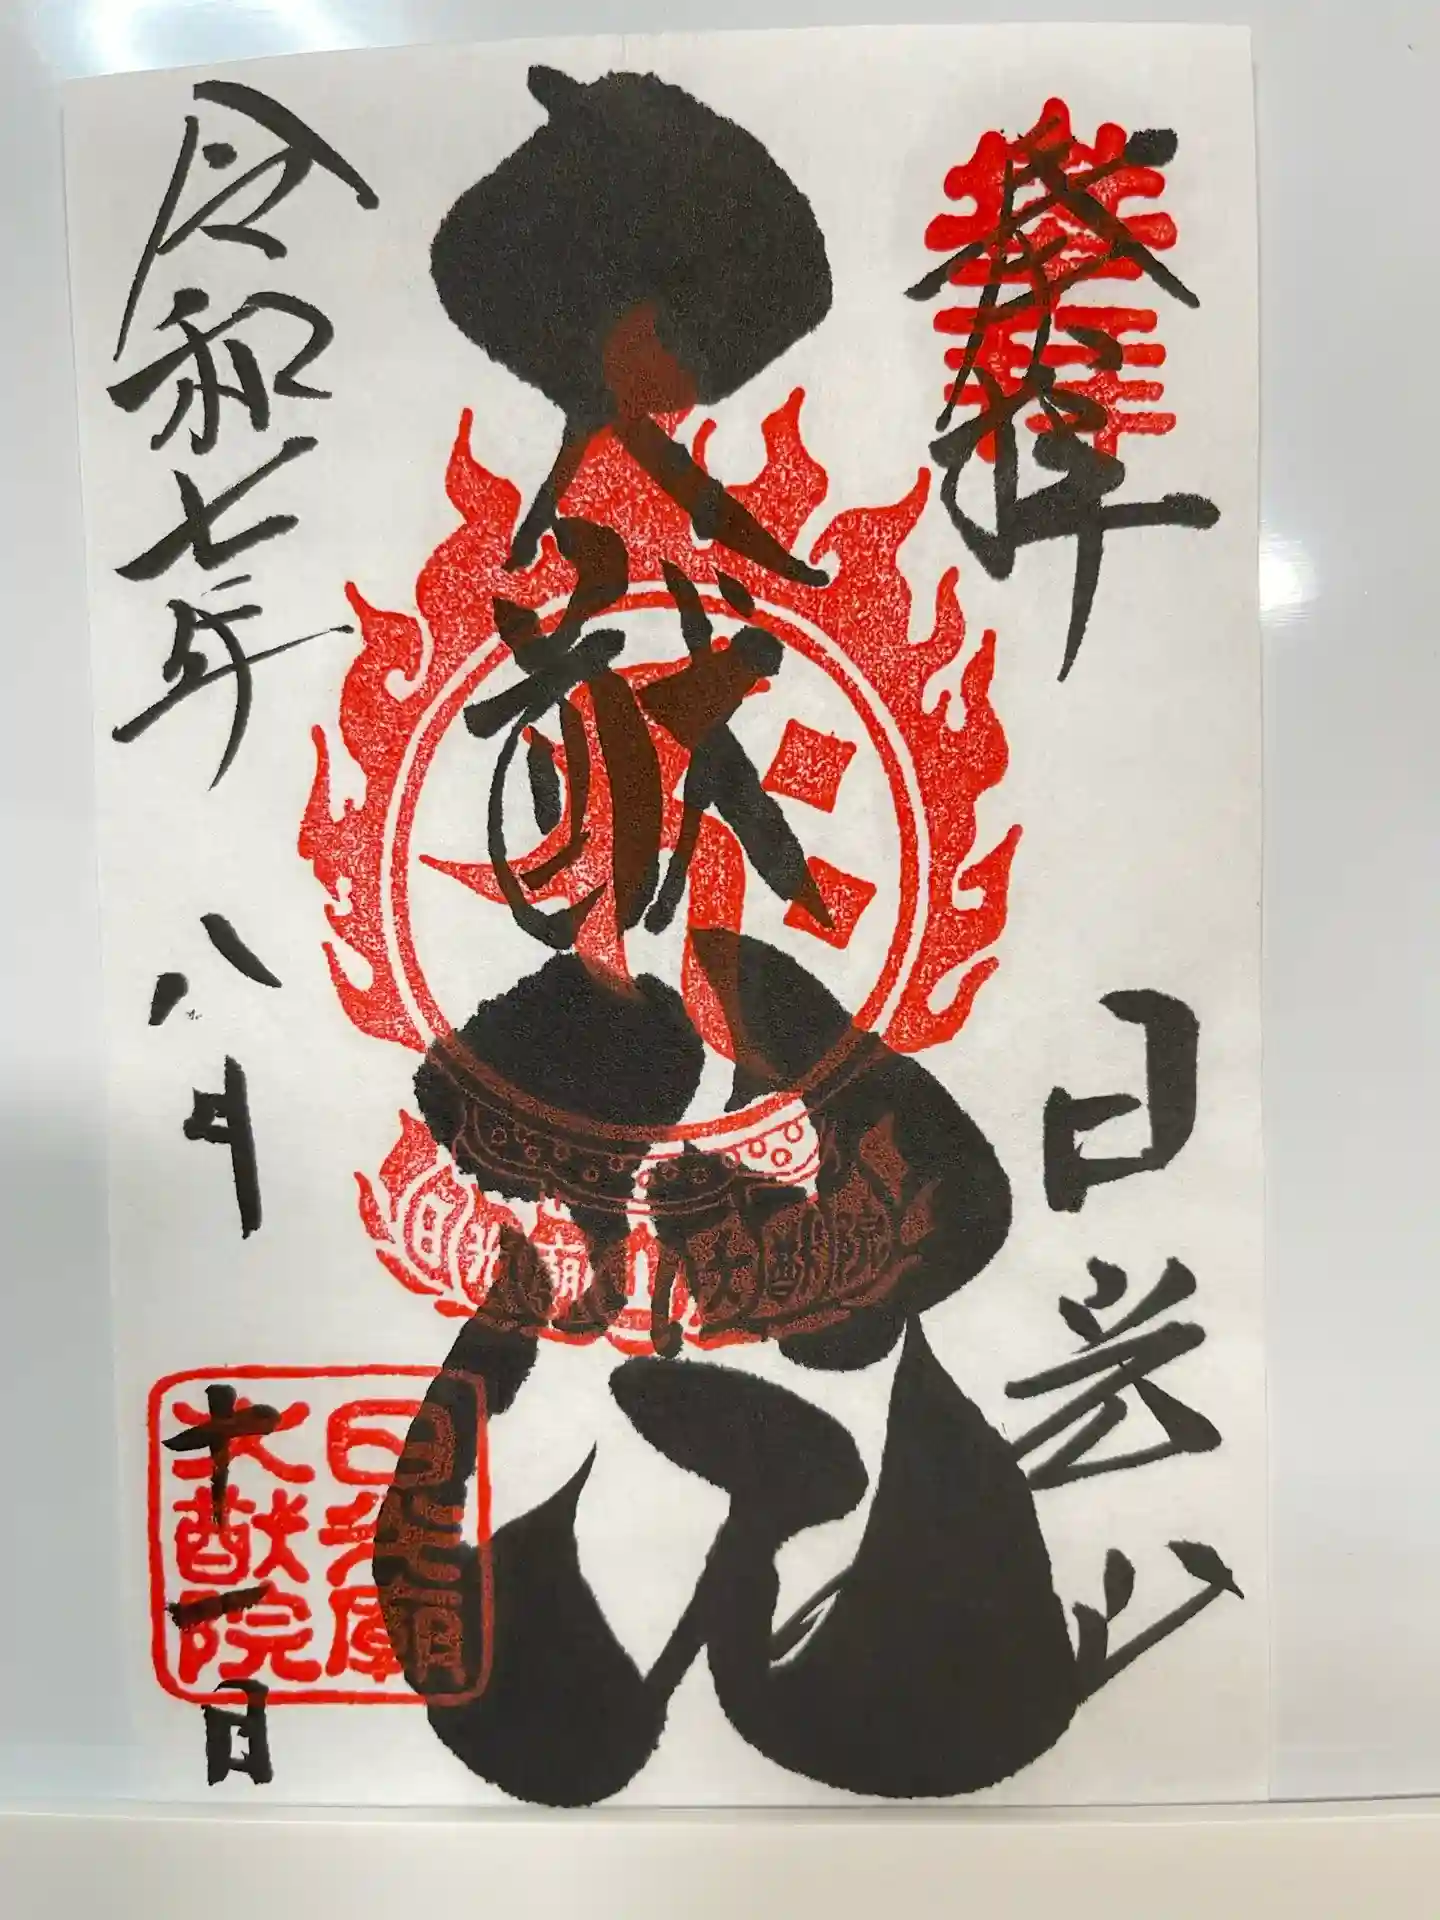 奉拝
日光山
大猷院
日光廟
大猷院
日光廟
大猷院
令和七年
八月
十一日